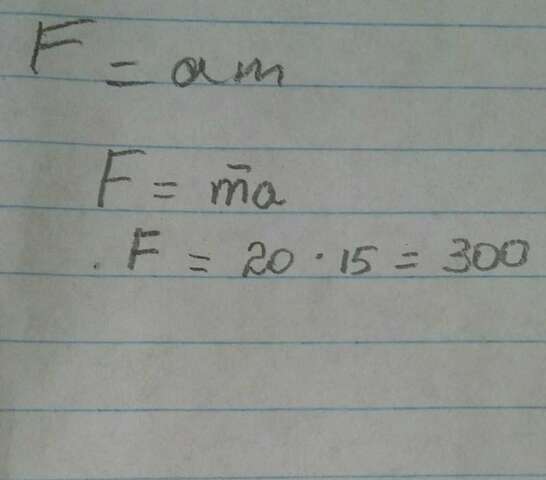 F = am
F = m̄a
F = 20 · 15 = 300